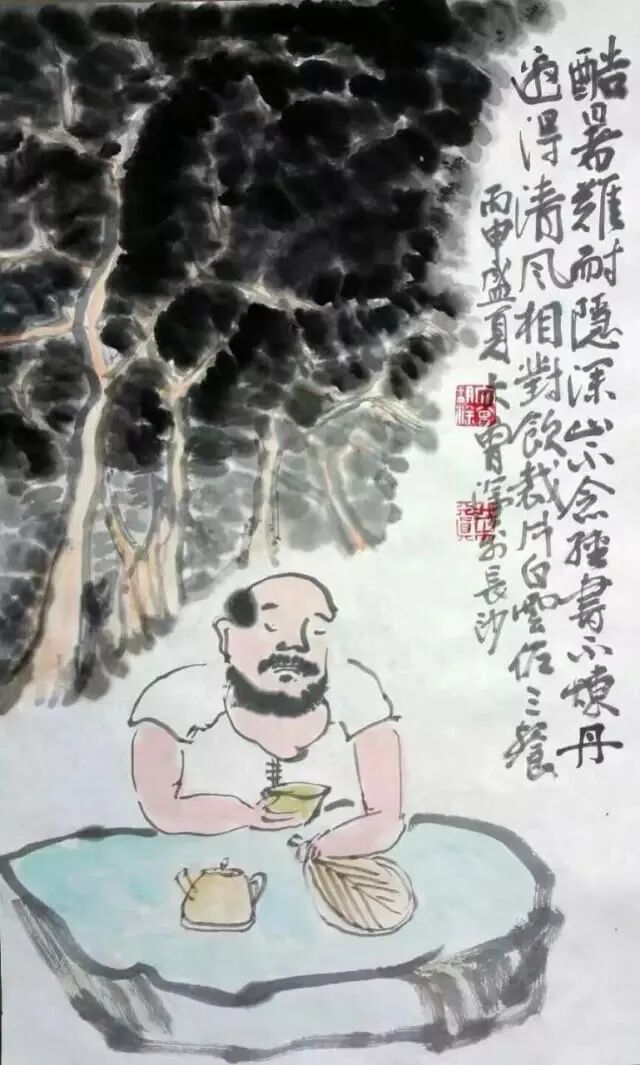 酷暑難耐隱深山不念經書不煉丹
邀得清风相對飲裁片白雲佐三餐
丙申盛夏大於長沙